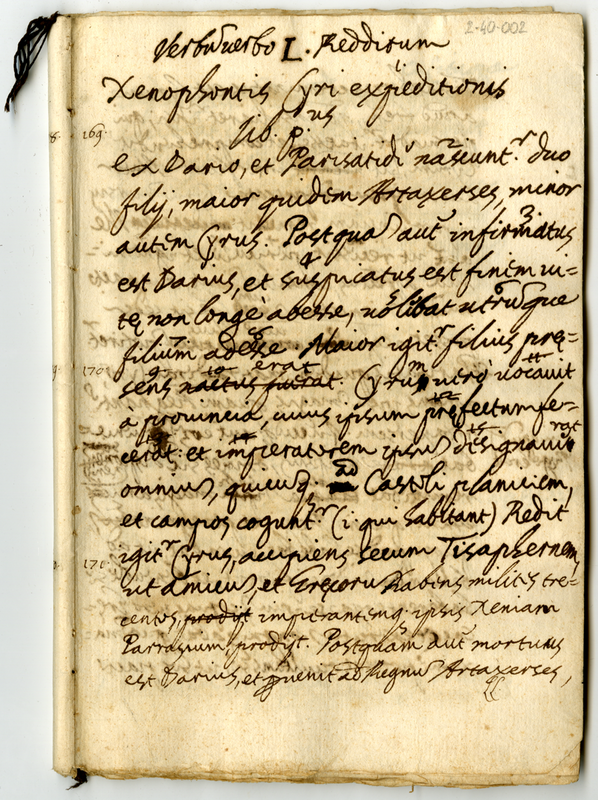 2-40-002
Verbũ verbo L. Redditum
Xenophontis Cyri expeditionis
lib. pus
169.
ex Dario, et Parisatidi nascunt.r duo
filij, maior quidem Artaxerses, minor
autem Cyrus. Postquã aut infirmatus
est Darius, et suspicatus est finem ui=
tę non longè abesse, uolibat utrũque
filium adesse. Maior igit.r filius pręs=
erat
170
sens nactus fuerat. Cyrum uerò uocauit
à prouincia, cuius ipsum pręfectum fe=
rat
cerat: et imperatorem ipsũ designauit
omniũ, quicũq; ad Castoli planiciem,
et campos cogunt.r (i qui habitant) Redit
171
igit.r Cyrus, accipiens secum Tisaphernem,
ut amicũ, et Gręcorũ habens milites tre=
centos, prodijt imperantemq; ipsis Xeniam
Parrasium, prodijt. Postquàm aut mortuus
est Darius, et puenit ad Regnũ Artaxerses,